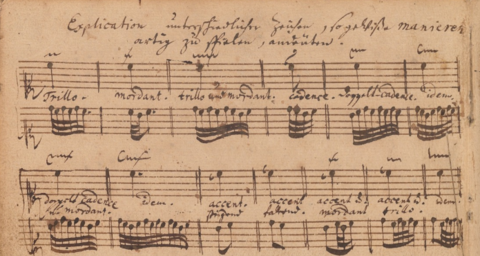 Explication unterschiedlicher Zeichen, so gewiße manieren
artig zu spielen, andeuten.
Trillo. mordant. trillo und mordant. cadence. doppelt cadence. idem.
doppelt cadence idem. accent accent accent u. accent u. idem
u. mordant. steigend fallend mordant trillo.